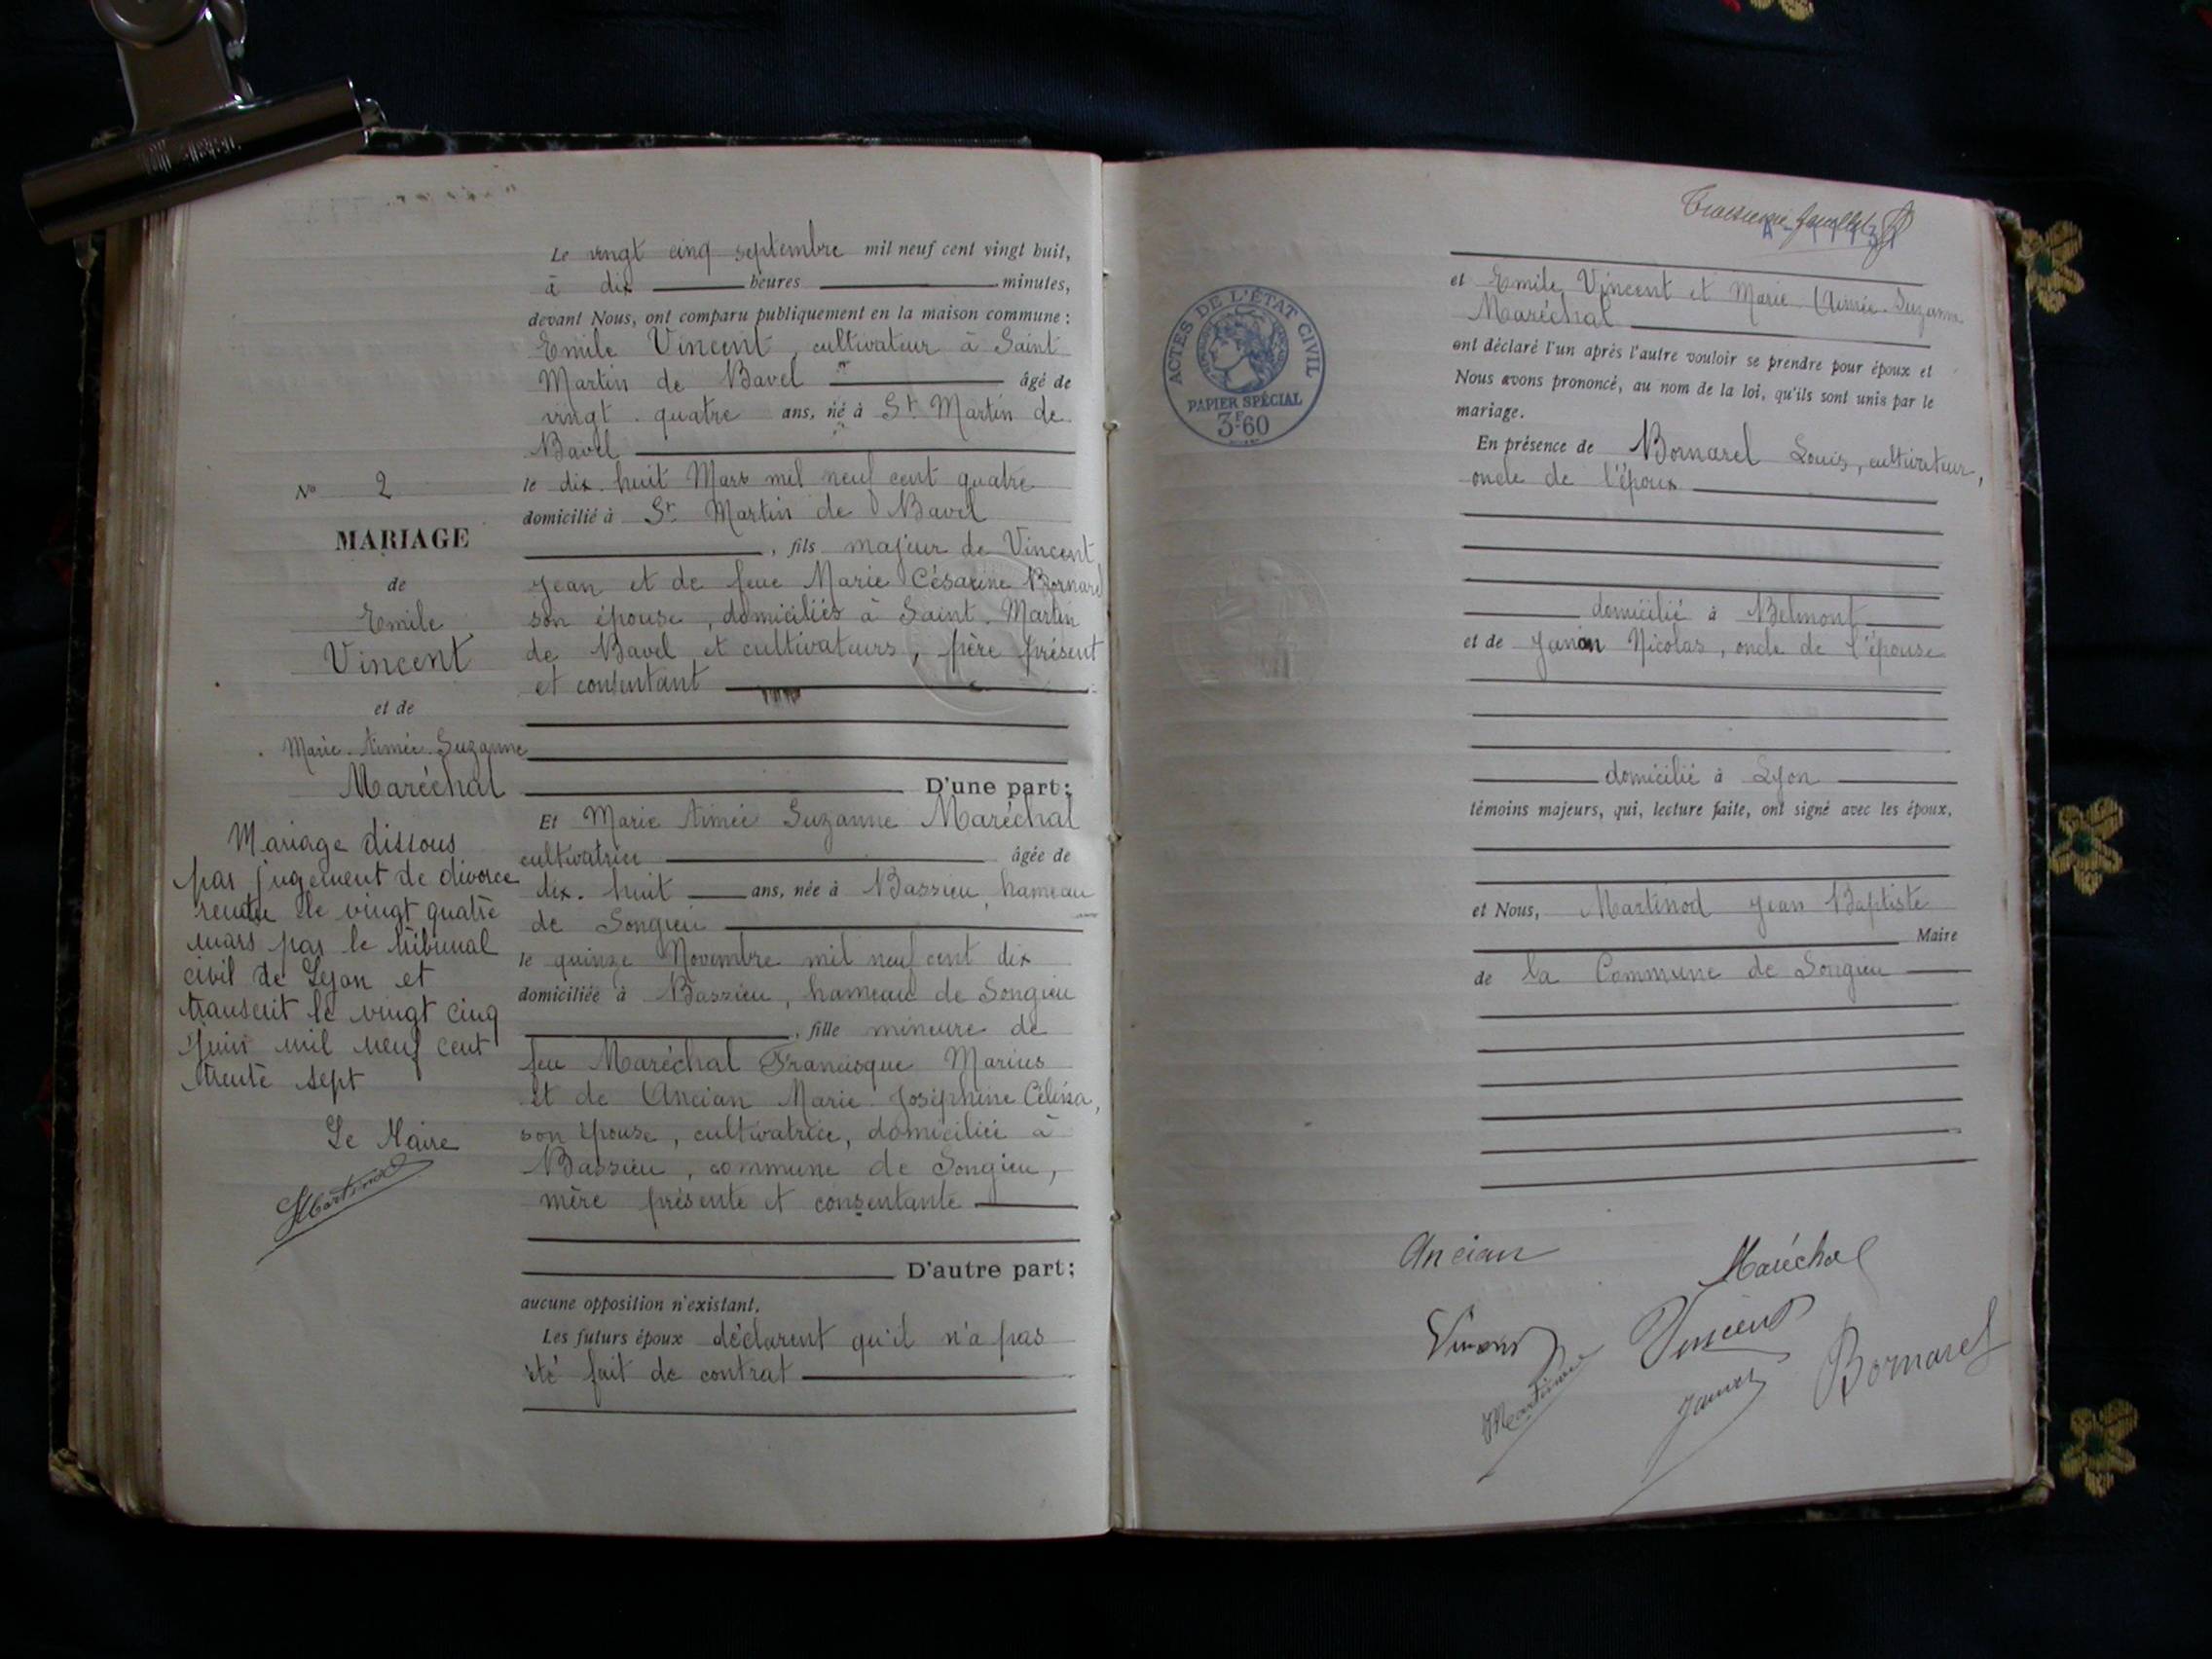 Le vingt cinq septembre mil neuf cent vingt huit,
à dix heures minutes,
devant Nous, ont comparu publiquement en la maison commune :
Emile Vincent, cultivateur à Saint
Martin de Bavel âgé de
vingt-quatre ans, né à St Martin de
Bavel
le dix-huit Mars mil neuf cent quatre
domicilié à St Martin de Bavel
, fils majeur de Vincent
Jean et de feue Marie Césarine Bornarel
son épouse, domiciliés à Saint-Martin
de Bavel et cultivateurs, père présent
et consentant
D'une part;
Et Marie Aimée Suzanne Maréchal
cultivatrice âgée de
dix-huit ans, née à Bassieu, hameau
de Songieu
le quinze Novembre mil neuf cent dix
domiciliée à Bassieu, hameau de Songieu
, fille mineure de
feu Maréchal Francisque Marius
et de Ancian Marie-Joséphine Célina,
son épouse, cultivatrice, domiciliée à
Bassieu, commune de Songieu,
mère présente et consentante
D'autre part;
aucune opposition n'existant.
Les futurs époux déclarent qu'il n'a pas
été fait de contrat
No 2
MARIAGE
de
Emile
Vincent
et de
Marie-Aimée-Suzanne
Maréchal
Mariage dissous
par jugement de divorce
rendu le vingt quatre
mars par le tribunal
civil de Lyon et
transcrit le vingt cinq
juin mil neuf cent
trente sept
Le Maire
Martinod
ACTES DE L'ÉTAT CIVIL
PAPIER SPÉCIAL
3F60
et Emile Vincent et Marie-Aimée-Suzanne
Maréchal
ont déclaré l'un après l'autre vouloir se prendre pour époux et
Nous avons prononcé, au nom de la loi, qu'ils sont unis par le
mariage.
En présence de Bornarel Louis, cultivateur,
oncle de l'époux
domicilié à Belmont
et de Janin Nicolas, oncle de l'épouse
domicilié à Lyon
témoins majeurs, qui, lecture faite, ont signé avec les époux,
et Nous, Martinod Jean Baptiste
Maire
de la Commune de Songieu
Ancian
Maréchal
Vincent
Vincent
Martinod
Bornarel